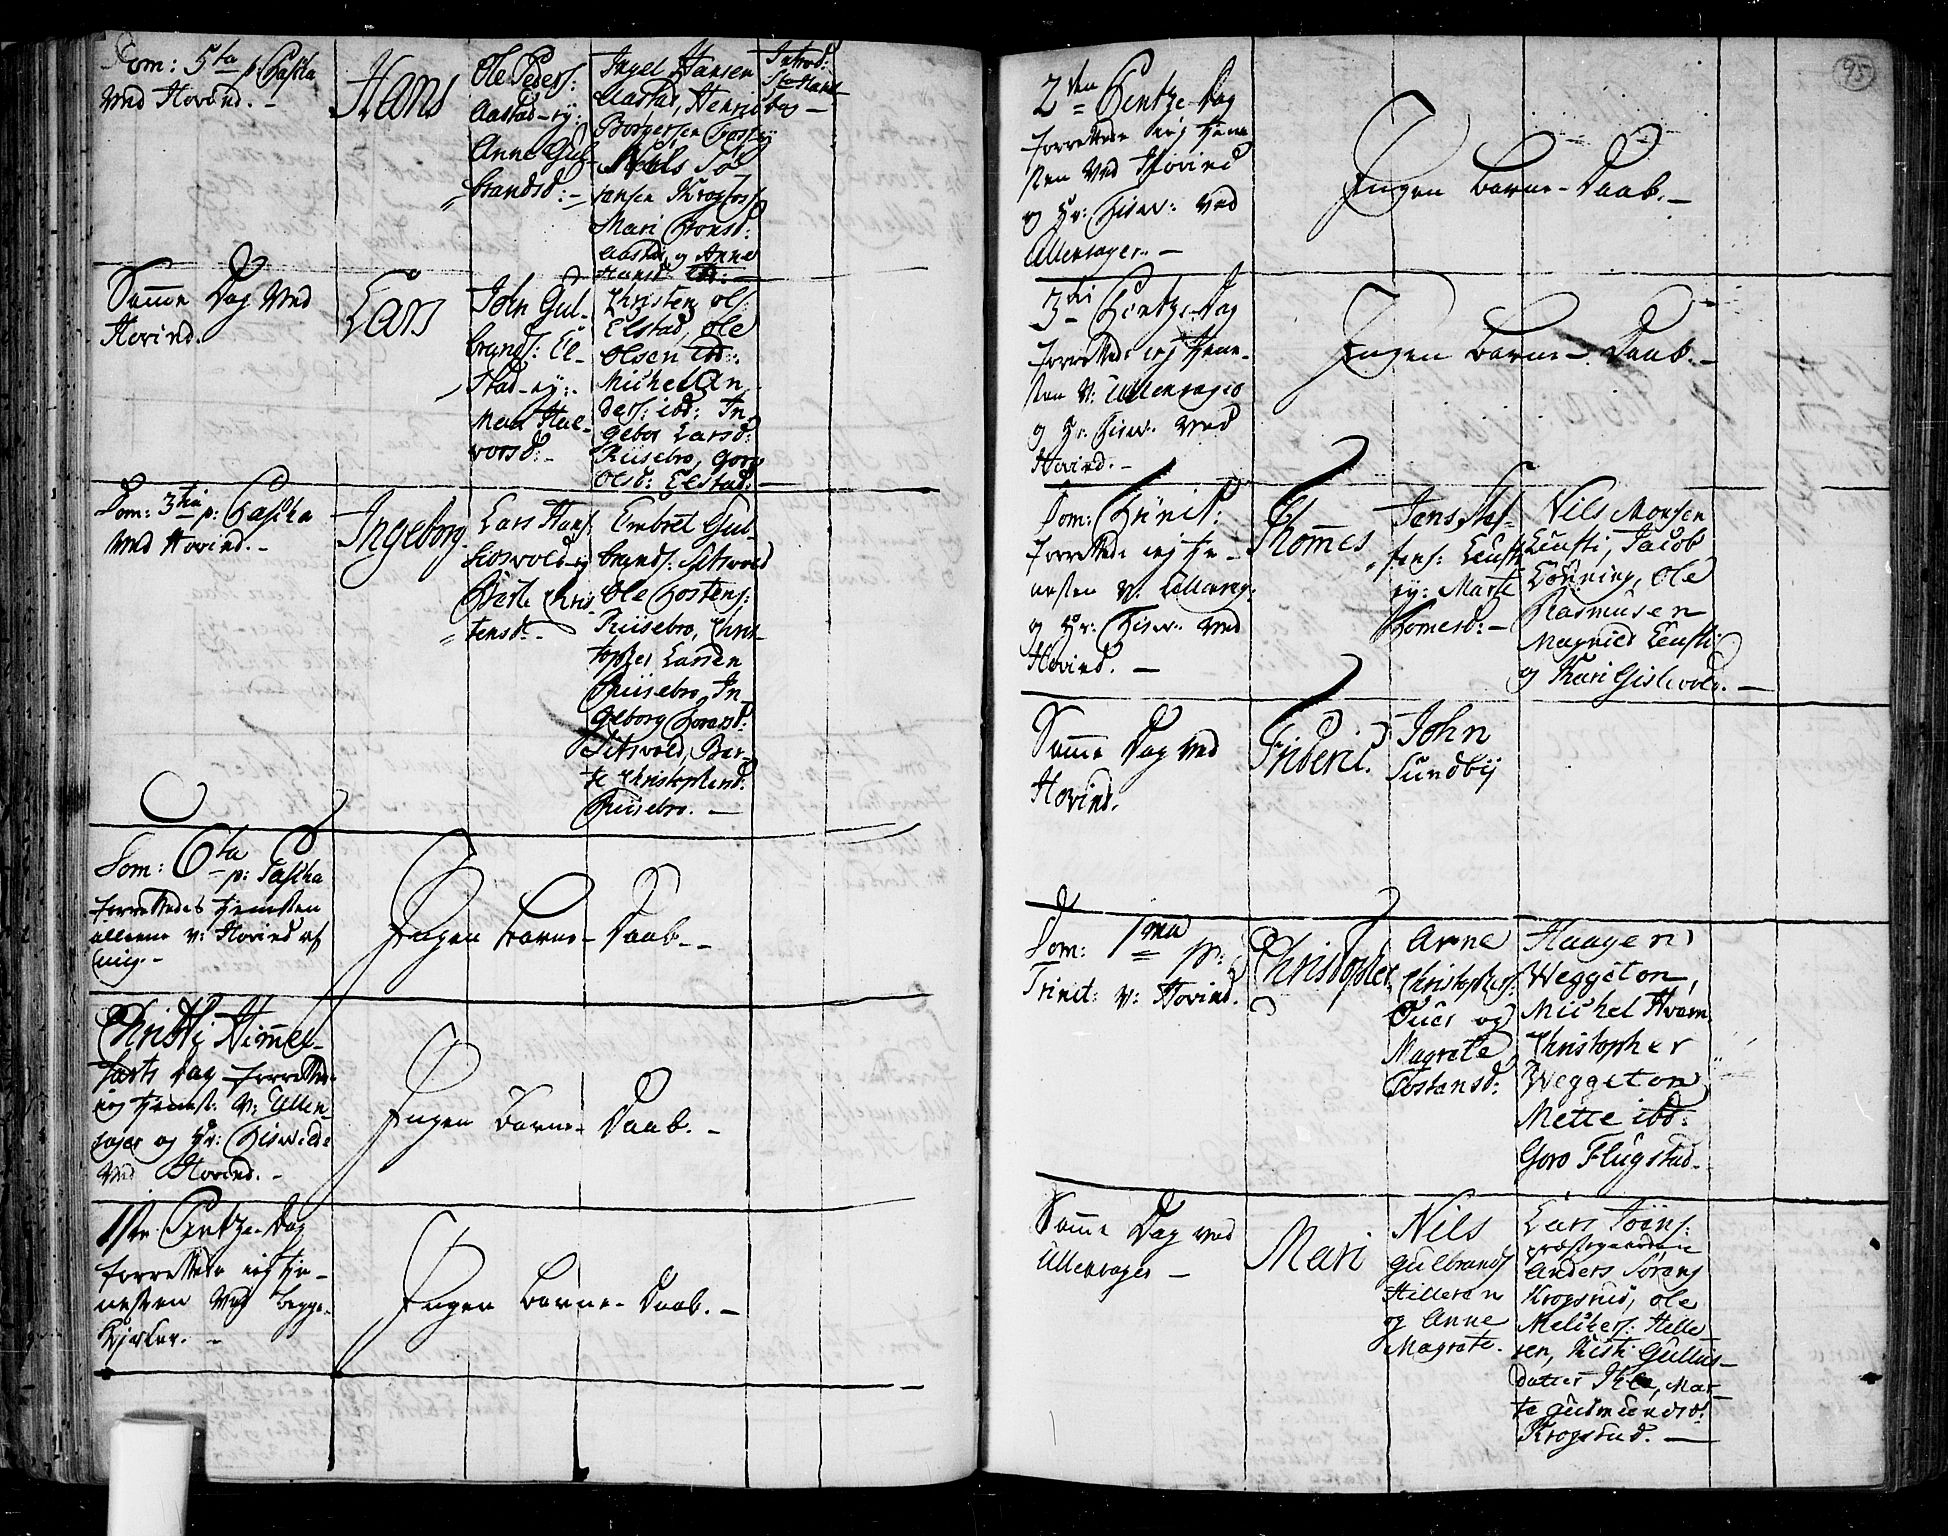 Dom: 5ta p: Pascha
Ved Hovind. -
Hans
Ole Peders:
Aastad-ey:
Anne Gul-
brandsd: -
Ingel Hansen
Aastad, Henric
Borgersen
Niels Sö-
rensen Krogfoss
Mari Hansd:
Aastad, og Anne
Hansd: ibd: -
Introd:
Samme Dag Ved
Hovind.
Lars
John Gul-
brands: El-
stad-ey:
Mari Hal-
vorsd: -
Christen Ols:
Elstad, Ole
Olsen ibd:
Michel An-
ders: ibd: In-
gebor Larsd:
Riisebro, Goro
Olsd: Elstad: -
Dom: 3tia p: Pascha
Ved Hovind. -
Ingeborg.
Lars Hans:
Berte Chris-
tensd: -
Embret Gul-
brands: Sitsvold
Ole Tostens:
Riisebro, Chris-
topher Larsen
Riisebro, In-
geborg
Sitsvold, Ber-
te Christophersd:
Riisebro. -
Dom: 6ta p: Pascha
forrettedes Tienesten
alleene v: Hovind af
mig. -
Ingen Barne-Daab. -
Christi Himmel-
farts Dag forretted-
jeg Tienest: v: Ullen-
sager og Hr:
Ved Hovind. -
Ingen Barne-Daab. -
1ste Pintze-Dag
forrettede jeg Tie-
nesten Ved begge
Kirker. -
Ingen Barne-Daab. -
95
2den Pintze-Dag
forrettede jeg Tiene-
sten Ved Hovind
og Hr: Ved
Ullensager. -
Ingen Barne-Daab. -
3die Pintze-Dag
forrettede jeg Tiene-
sten v: Ullensager
og Hr: Ved
Hovind. -
Ingen Barne-Daab. -
Dom: Trinit:
forrettede jeg Tie-
nesten v: Ullensag:
og Hr: Ved
Hovind. -
Thommes
Jens
ey: Marte
Tomesd: -
Nils Monsen
Jacob
Ole
Rasmusen
og Kari
Samme Dag Ved
Hovind.
Frideric.
John
Sundbÿ
Dom: 1ma p:
Trinit: v: Hovind.
Christopher
Arne
Christophers:
og
Magrete
Tostensd:
Haagen
Weggeton,
Michel Hvam,
Christopher
Weggeton
Mette ibd:
Goro Flugstad. -
Samme Dag ved
Ullensager -
Mari
Nils
Gulbrands
Hilleren
og Anne
Magrete.
Lars Jöns:
Præstegaarden
Anders Sörens
Krogsrud, Ole
Melchers: Hille-
ren, Kisti Gullies-
datter Mar-
te Gudmundsd:
Krogsrud. -